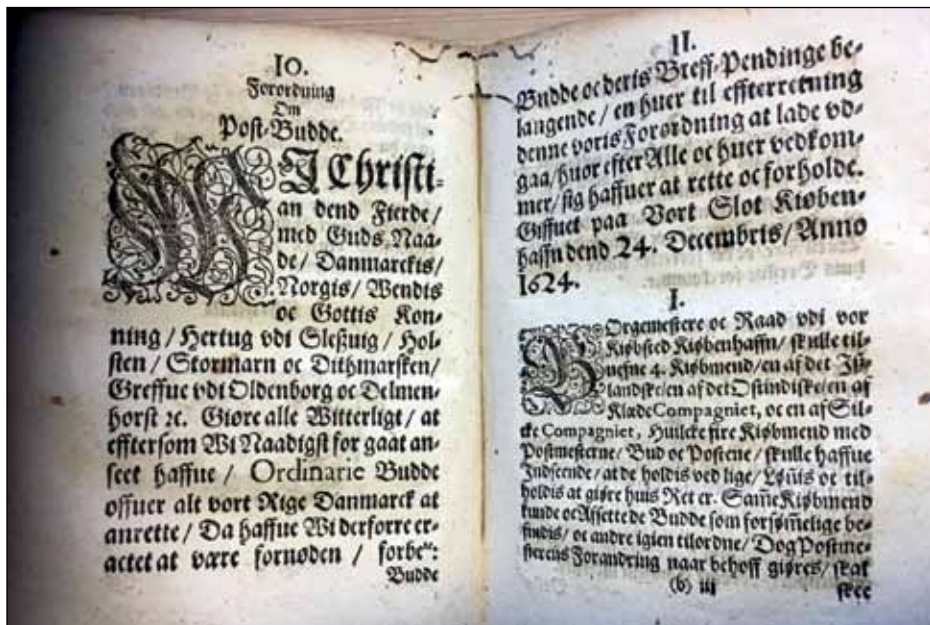 10.
Forordning
Om
Post-Budde.
WI Christi-
an dend Fierde/
med Guds Naa-
de/ Danmarckis/
Norgis/ Wendis
oc Gottis Kon-
ning/ Hertug vdi Sleßuig/ Hol-
sten/ Stormarn oc Dithmarsken/
Greffue vdi Oldenborg oc Delmen-
horst ꝛc. Giøre alle Witterligt/ at
efftersom Wi Naadigst for gaat an-
seet haffue/ Ordinarie Budde
offuer alt vort Rige Danmarck at
anrette/ Da haffue Wi derforre er-
actet at være fornøden/ forbeᵗᵉ:
Budde
11.
Budde oc deris Breff-Pendinge be-
langende/ en huer til effterretning
denne voris Forordning at lade vd-
gaa/ huor efter Alle oc huer vedkom-
mer/ sig haffuer at rette oc forholde.
Giffuet paa Vort Slot Kiøben-
haffn dend 24. Decembris/ Anno
1624.
I.
BOrgemestere oc Raad vdi vor
Kiøbsted Kiøbenhaffn/ skulle til-
nefne 4. Kiøbmend/ en af det Jß-
landske/ en af det Ostindiske/ en af
Klæde Compagniet, oc en af Sil-
cke Compagniet, Huilcke fire Kiøbmend med
Postmesterne/ Bud oc Postene/ skulle haffue
Indseende/ at de holdis ved lige/ Løñis oc til-
holdis at giøre huis Ret er. Sam̃e Kiøbmend
kunde oc Afsette de Budde som forsøm̃elige be-
findis/ oc andre igien tilordne/ Dog Postme-
sterens Forandring naar behoff giøres/ skal
(b) iij
skee